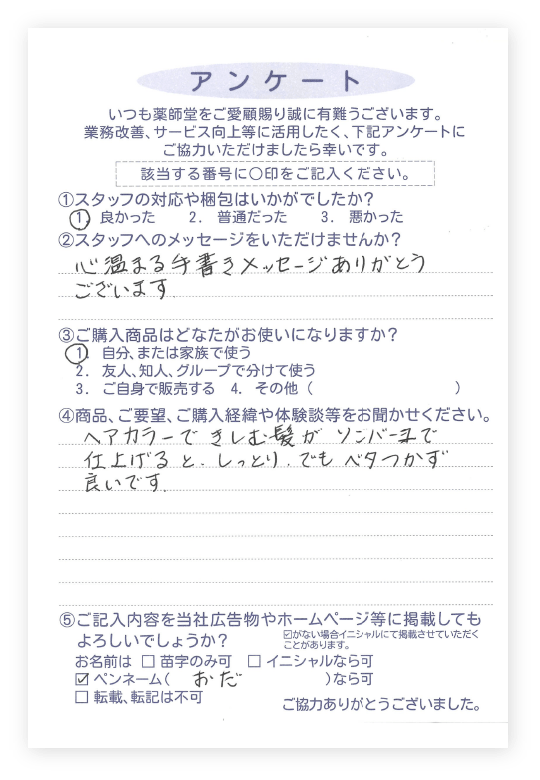 アンケート
いつも薬師堂をご愛顧賜り誠に有難うございます。
業務改善、サービス向上等に活用したく、下記アンケートに
ご協力いただけましたら幸いです。
該当する番号に〇印をご記入ください。
①スタッフの対応や梱包はいかがでしたか?
1. 良かった 2. 普通だった 3. 悪かった
②スタッフへのメッセージをいただけませんか?
心温まる手書きメッセージありがとう
ございます.
③ご購入商品はどなたがお使いになりますか?
1. 自分、または家族で使う
2. 友人、知人、グループで分けて使う
3. ご自身で販売する 4. その他( )
④商品、ご要望、ご購入経緯や体験談等をお聞かせください。
ヘアカラーできしむ髪がソンバーユで
仕上げると、しっとり、でもベタつかず
良いです.
⑤ご記入内容を当社広告物やホームページ等に掲載しても
よろしいでしょうか?
☑がない場合イニシャルにて掲載させていただく
ことがあります。
お名前は □ 苗字のみ可 □ イニシャルなら可
☑ ペンネーム( おだ )なら可
□ 転載、転記は不可
ご協力ありがとうございました。